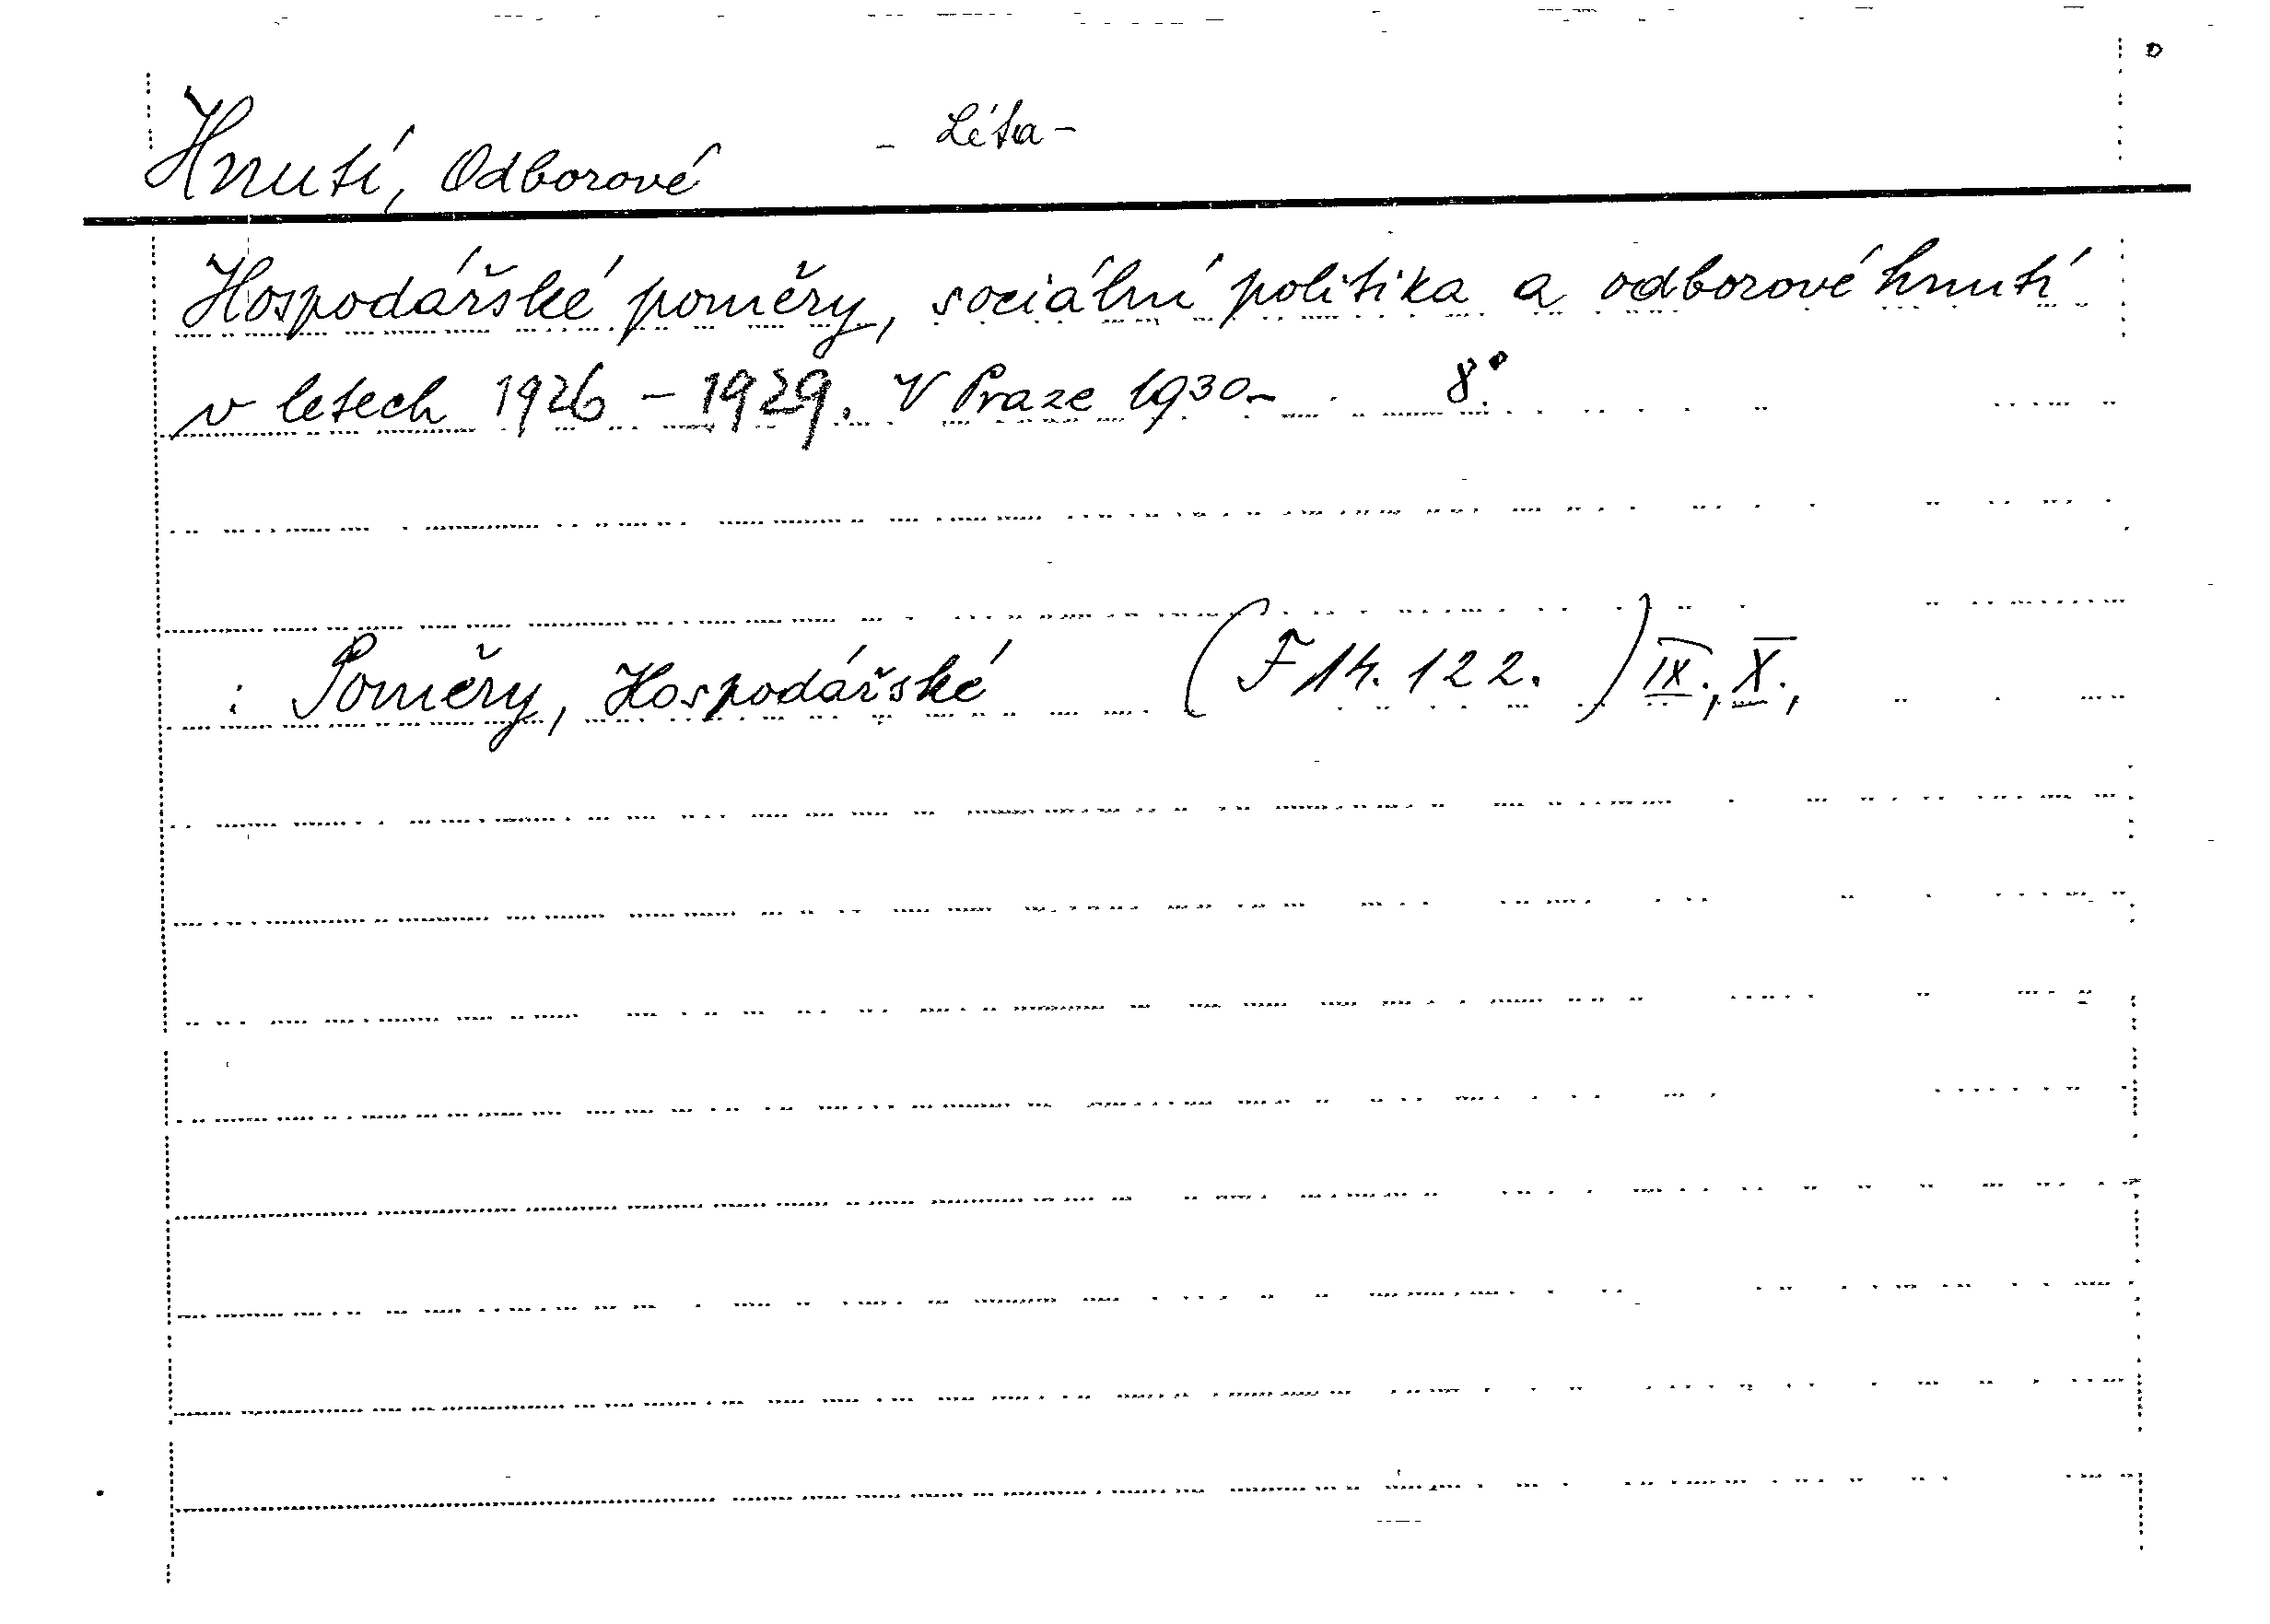 Hnutí, Odborové - Léta -
Hospodářské poměry, sociální politika a odborové hnutí
v letech 1926 - 1929. V Praze 1930.- 8°.
: Poměry, Hospodářské (F 14. 122.) IX., X.,